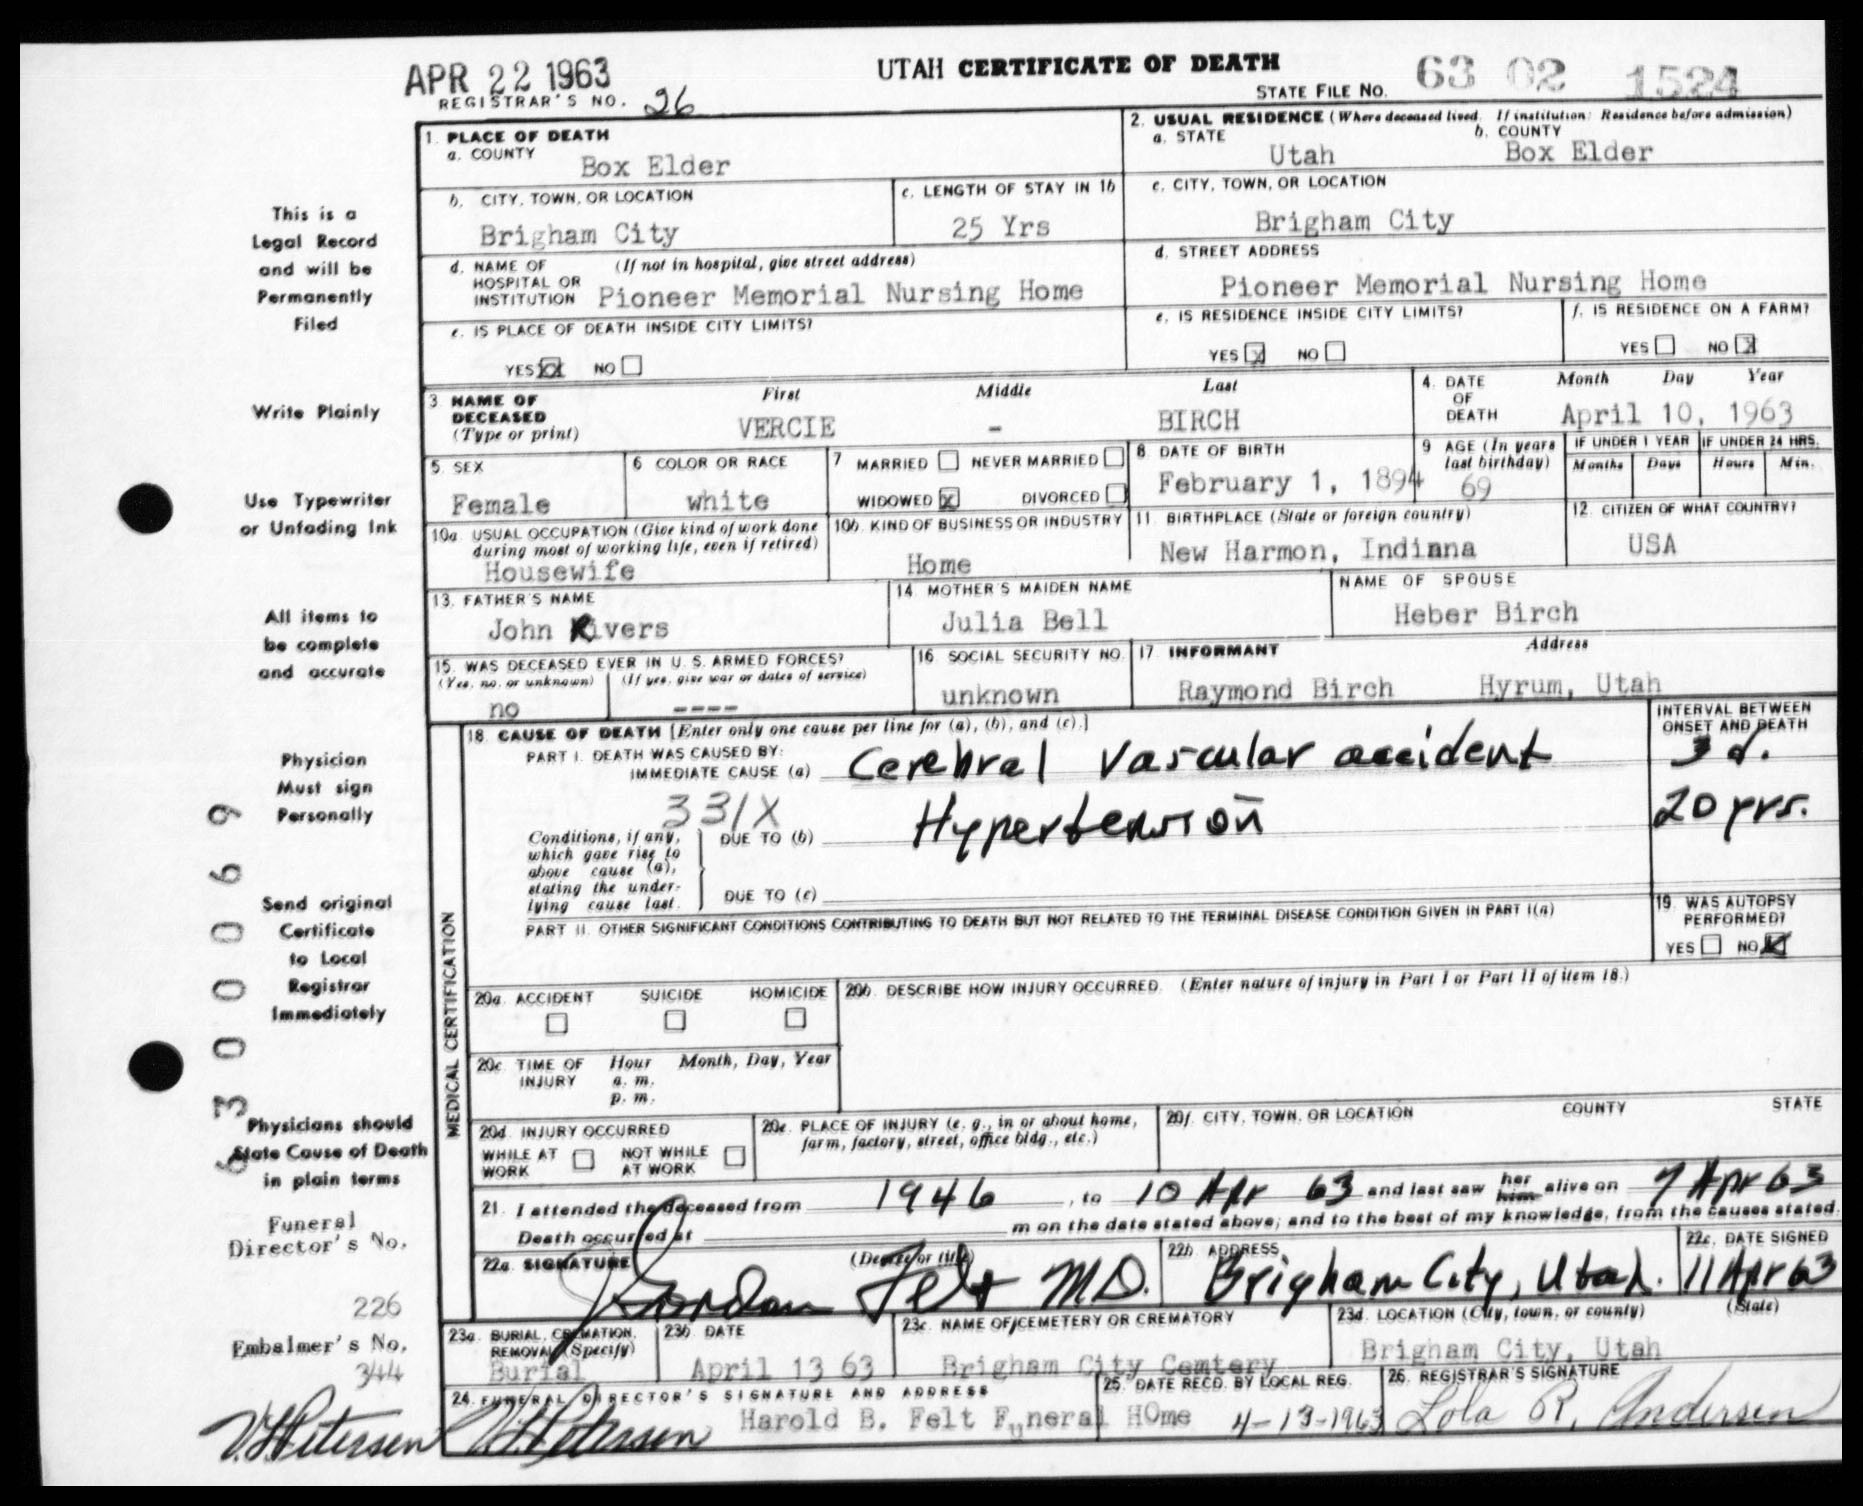 APR 22 1963
UTAH CERTIFICATE OF DEATH
REGISTRAR'S NO. 26
STATE FILE NO. 63 02 1524
1. PLACE OF DEATH
a. COUNTY Box Elder
2. USUAL RESIDENCE (Where deceased lived. If institution: Residence before admission)
a. STATE Utah b. COUNTY Box Elder
b. CITY, TOWN, OR LOCATION Brigham City
c. LENGTH OF STAY IN 1b 25 Yrs
c. CITY, TOWN, OR LOCATION Brigham City
d. NAME OF HOSPITAL OR INSTITUTION (If not in hospital, give street address) Pioneer Memorial Nursing Home
d. STREET ADDRESS Pioneer Memorial Nursing Home
e. IS PLACE OF DEATH INSIDE CITY LIMITS?
YES X NO
e. IS RESIDENCE INSIDE CITY LIMITS?
YES X NO
f. IS RESIDENCE ON A FARM?
YES NO X
3. NAME OF DECEASED (Type or print)
First Middle Last
VERCIE - BIRCH
4. DATE OF DEATH
Month Day Year
April 10, 1963
5. SEX
Female
6 COLOR OR RACE
white
7 MARRIED NEVER MARRIED
WIDOWED X DIVORCED
8. DATE OF BIRTH
February 1, 1894
9 AGE (In years last birthday)
69
IF UNDER 1 YEAR IF UNDER 24 HRS.
Months Days Hours Min.
10a. USUAL OCCUPATION (Give kind of work done during most of working life, even if retired)
Housewife
10b. KIND OF BUSINESS OR INDUSTRY
Home
11. BIRTHPLACE (State or foreign country)
New Harmon, Indiana
12. CITIZEN OF WHAT COUNTRY?
USA
13. FATHER'S NAME
John Rivers
14 MOTHER'S MAIDEN NAME
Julia Bell
NAME OF SPOUSE
Heber Birch
15. WAS DECEASED EVER IN U. S. ARMED FORCES?
(Yes, no, or unknown) (If yes, give war or dates of service)
no ----
16 SOCIAL SECURITY NO.
unknown
17. INFORMANT Address
Raymond Birch Hyrum, Utah
18. CAUSE OF DEATH [Enter only one cause per line for (a), (b), and (c).]
INTERVAL BETWEEN ONSET AND DEATH
PART I. DEATH WAS CAUSED BY:
IMMEDIATE CAUSE (a) Cerebral Vascular accident 3 d.
331X
Conditions, if any, which gave rise to above cause (a), stating the underlying cause last.
DUE TO (b) Hypertension 20 yrs.
DUE TO (c)
PART II. OTHER SIGNIFICANT CONDITIONS CONTRIBUTING TO DEATH BUT NOT RELATED TO THE TERMINAL DISEASE CONDITION GIVEN IN PART I(a)
19. WAS AUTOPSY PERFORMED?
YES NO X
MEDICAL CERTIFICATION
20a. ACCIDENT SUICIDE HOMICIDE
20b. DESCRIBE HOW INJURY OCCURRED. (Enter nature of injury in Part I or Part II of item 18.)
20c. TIME OF INJURY Hour Month, Day, Year
a. m.
p. m.
20d. INJURY OCCURRED
WHILE AT WORK NOT WHILE AT WORK
20e. PLACE OF INJURY (e. g., in or about home, farm, factory, street, office bldg., etc.)
20f. CITY, TOWN, OR LOCATION COUNTY STATE
21. I attended the deceased from 1946, to 10 Apr 63 and last saw her him alive on 7 Apr 63
Death occurred at m on the date stated above; and to the best of my knowledge, from the causes stated.
22a. SIGNATURE (Degree or title)
Gordon Felt M.D.
22b. ADDRESS
Brigham City, Utah.
22c. DATE SIGNED
11 Apr 63
23a. BURIAL, CREMATION, REMOVAL (Specify)
Burial
23b. DATE
April 13 63
23c. NAME OF CEMETERY OR CREMATORY
Brigham City Cemtery
23d. LOCATION (City, town, or county) (State)
Brigham City, Utah
24. FUNERAL DIRECTOR'S SIGNATURE AND ADDRESS
Petersen Harold B. Felt Funeral HOme
25. DATE RECD. BY LOCAL REG.
4-13-1963
26. REGISTRAR'S SIGNATURE
Lola R. Andersen
This is a
Legal Record
and will be
Permanently
Filed
Write Plainly
Use Typewriter
or Unfading Ink
All items to
be complete
and accurate
Physician
Must sign
Personally
Send original
Certificate
to Local
Registrar
Immediately
Physicians should
State Cause of Death
in plain terms
Funeral
Director's No.
226
Embalmer's No.
344
Petersen
63000069